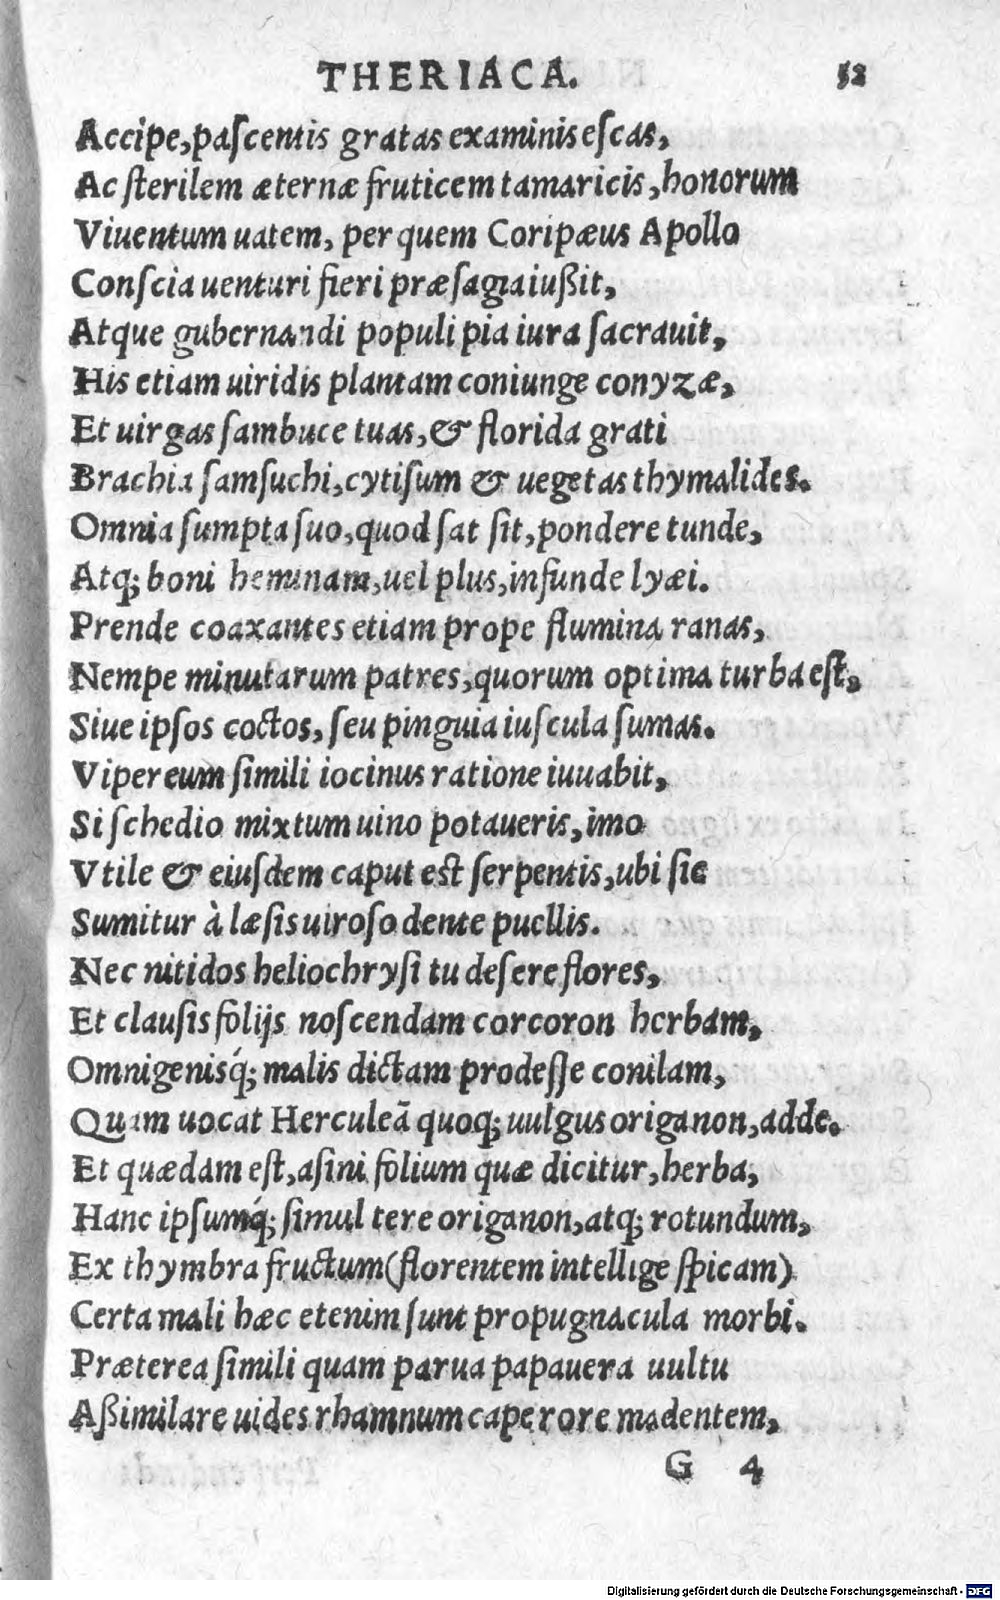 THERIACA. 52
Accipe, paſcentis gratas examinis eſcas,
Ac ſterilem æternæ fruticem tamaricis, honorum
Viuentum uatem, per quem Coripæus Apollo
Conſcia uenturi fieri præſagia iußit,
Atque gubernandi populi pia iura ſacrauit,
His etiam uiridis plantam coniunge conyzæ,
Et uirgas ſambuce tuas, & florida grati
Brachia ſamſuchi, cytiſum & uegetas thymalides.
Omnia ſumpta ſuo, quod ſat ſit, pondere tunde,
Atq; boni heminam, uel plus, infunde lyæi.
Prende coaxantes etiam prope flumina ranas,
Nempe minutarum patres, quorum optima turba eſt,
Siue ipſos coctos, ſeu pinguia iuſcula ſumas.
Vipereum ſimili iocinus ratione iuuabit,
Si ſchedio mixtum uino potaueris, imo
Vtile & eiuſdem caput est ſerpentis, ubi ſic
Sumitur à læſis uiroſo dente puellis.
Nec nitidos heliochryſi tu deſere flores,
Et clauſis folijs noſcendam corcoron herbam,
Omnigenisq́; malis dictam prodeſſe conilam,
Quam uocat Herculeā quoq; uulgus origanon, adde.
Et quædam eſt, aſini folium quæ dicitur, herba,
Hanc ipſumq́; ſimul tere origanon, atq; rotundum,
Ex thymbra fructum (florentem intellige ſpicam)
Certa mali hæc etenim ſunt propugnacula morbi.
Præterea ſimili quam parua papauera uultu
Aßimilare uides rhamnum cape rore madentem,
G 4
Digitalisierung gefördert durch die Deutsche Forschungsgemeinschaft - DFG